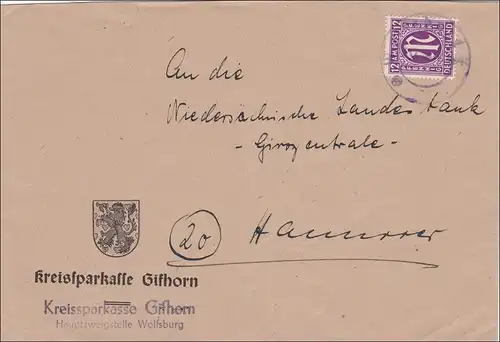 12 AM POST 12
DEUTSCHLAND
PFENNIG
An die
Niedersächsische Landesbank
- Girozentrale -
20 Hannover
Kreissparkasse Gifhorn
Kreissparkasse Gifhorn
Hauptzweigstelle Wolfsburg